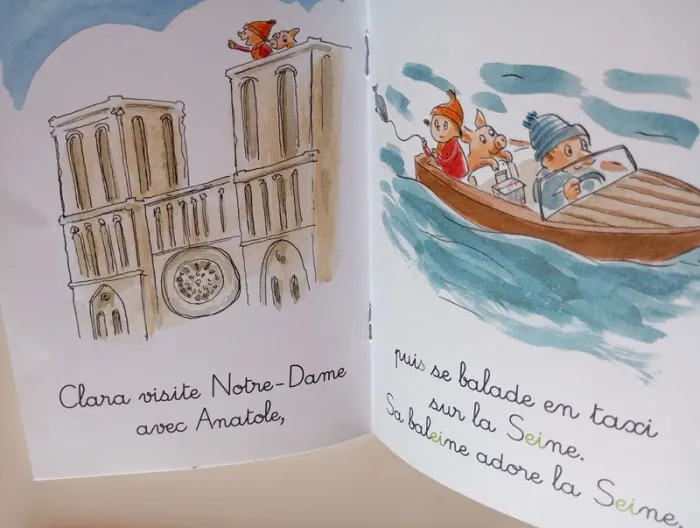 Clara visite Notre-Dame
avec Anatole,
puis se balade en taxi
sur la Seine.
Sa baleine adore la Seine.